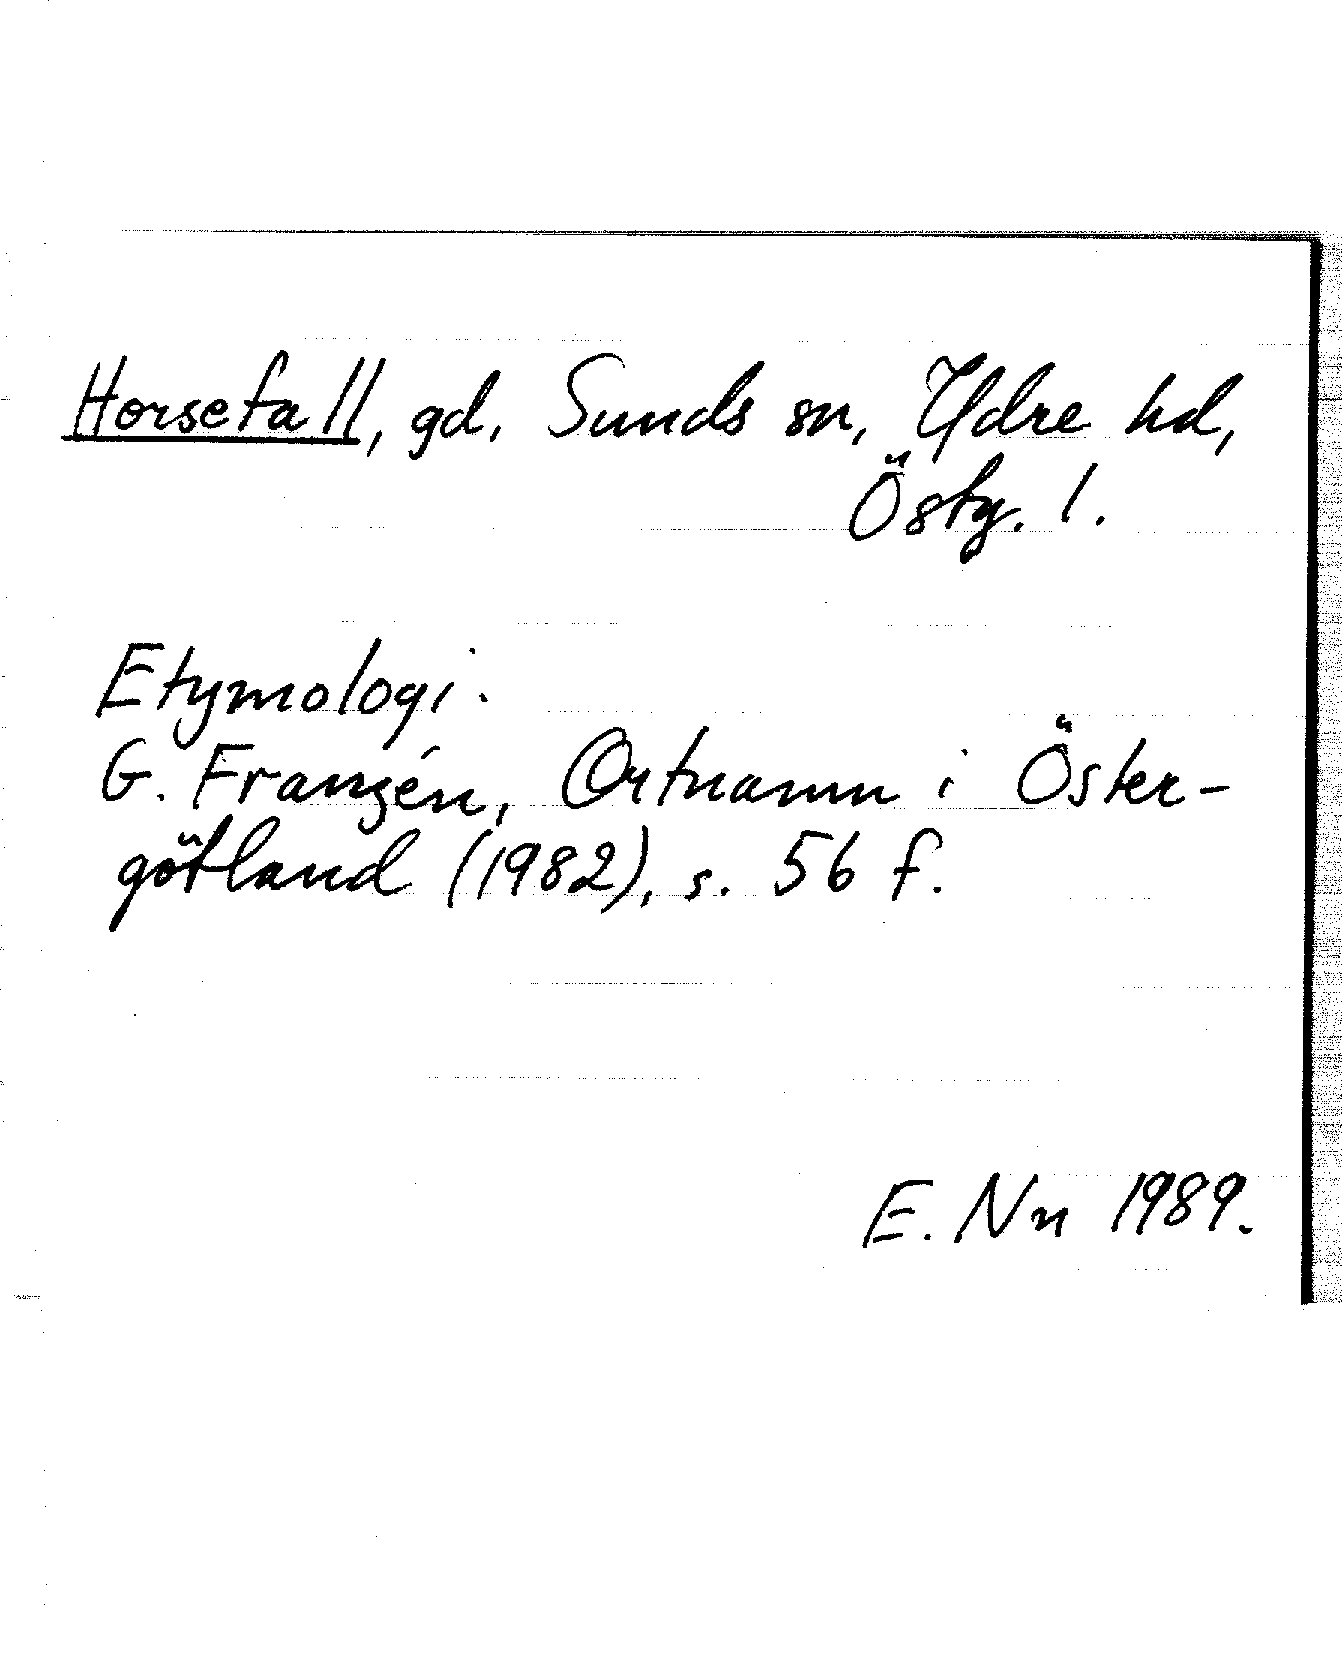 Horsefall, gd, Sunds sn, Ydre hd,
Östg. l.
Etymologi:
G. Franzén, Ortnamn i Öster-
götland (1982), s. 56 f.
E. Nn 1989.